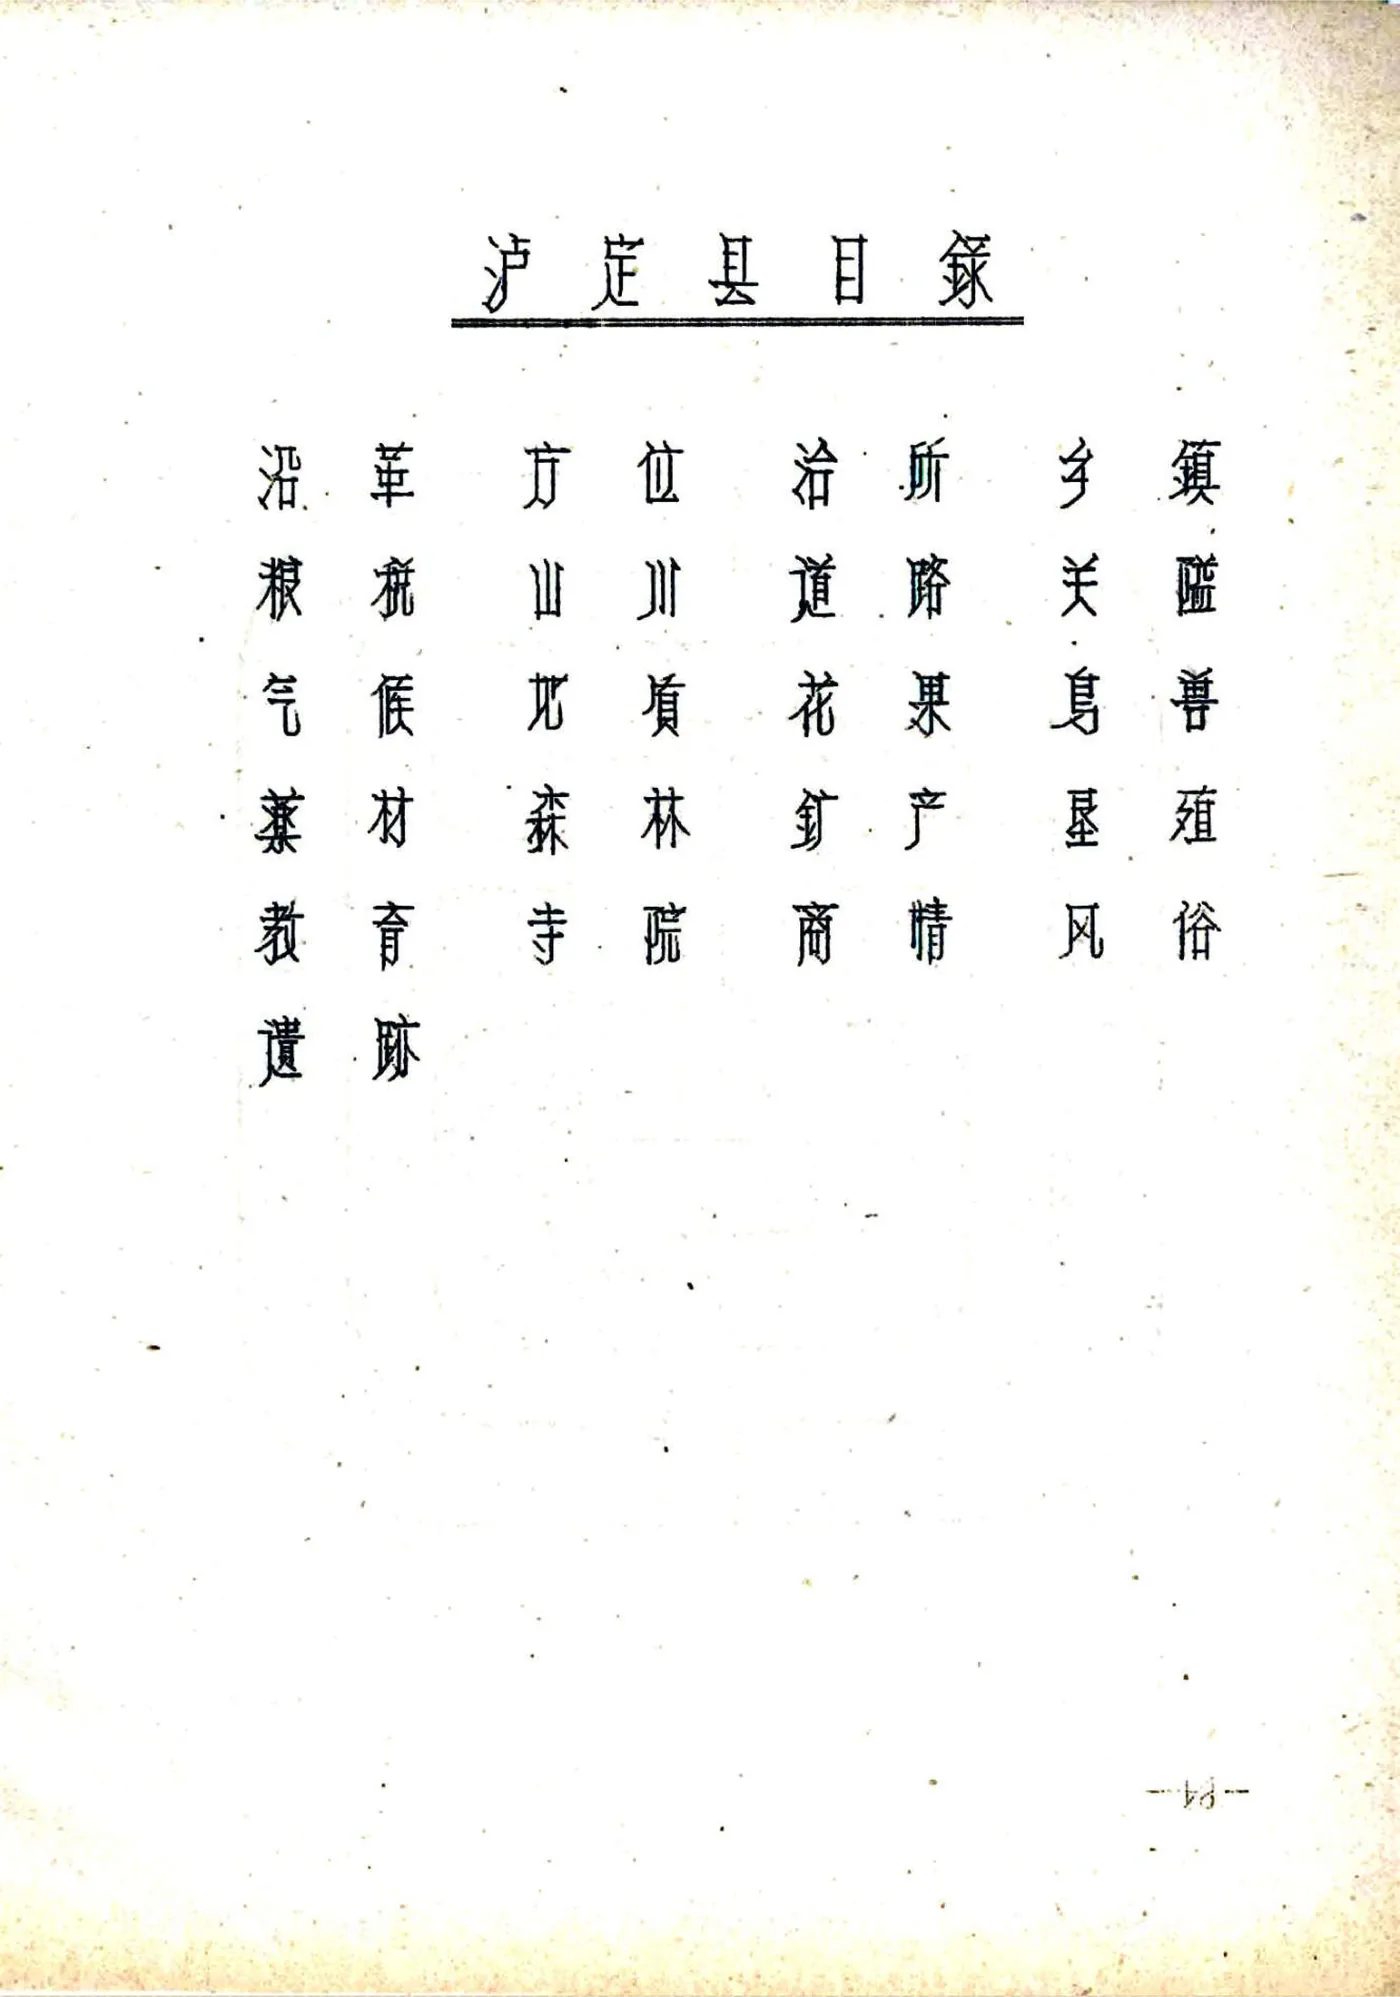 泸定县目錄
沿革 方位 治所 乡鎮
粮税 山川 道路 关隘
气候 地項 花果 鳥兽
薬材 森林 釤产 垦殖
教育 寺院 商情 风俗
遺跡